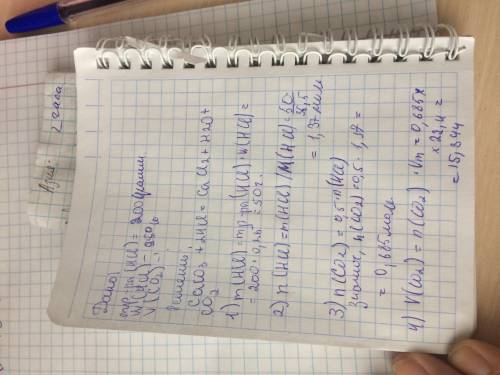 Дано:
mр-ра(HCl) = 200грамм
W(HCl) = 25%
V(CO2) - ?
Решение:
CaCO3 + 2HCl = CaCl2 + H2O +
CO2
1) m(HCl) = mр-ра(HCl) · w(HCl) =
= 200 · 0,25 = 50г.
2) n(HCl) = m(HCl) / M(HCl) = 50/36,5
= 1,37 моль
3) n(CO2) = 0,5 · n(HCl)
значит, n(CO2) = 0,5 · 1,37 =
= 0,685 моль
4) V(CO2) = n(CO2) · Vm = 0,685 х
х 22,4 =
= 15,344